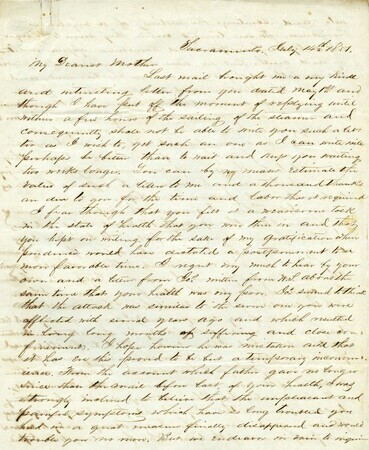 Sacramento, July 14th 1851.
My Dearest Mother
Last mail brought me a very kind
and interesting letter from you dated May and
though I have put off the moment of replying until
within a few hours of the sailing of the steamer and
consequently shall not be able to write you such a let-
ter as I wish to, yet such an one as I can write will
perhaps be better than to wait and keep you waiting
two weeks longer. You can by no means estimate the
value of such a letter to me and a thousand thanks
are due to you for the time and labor that it required
I fear though that you felt it a wearisome task
in the state of health that you were then in and that
you kept on writing for the sake of my gratification when
prudence would have dictated a postponement to a
more favorable time. I regret very much to hear by your
own and a letter from written from at about the
same time that your health was very poor. I
that the attack was similar to the one you were
afflicted with several years ago and which resulted
in long long months of suffering and close con-
finement. I hope however he was mistaken and that
it has ere this proved to be but a temporary inconven-
ience. From the account which father gave no longer
since than the mail before last of your health, I was
strongly inclined to believe that the unpleasant and
painful symptoms which have so long troubled you
had in a great measure finally disappeared and would
trouble you no more. But we endeavor in vain to